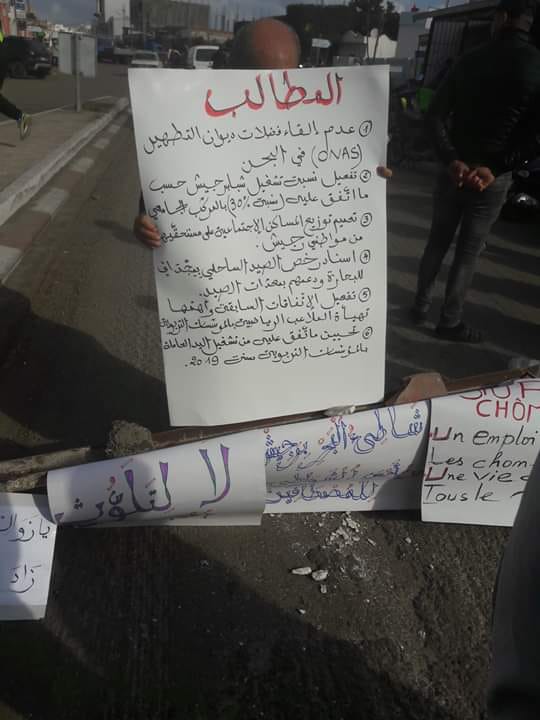 المطالب
① عدم إلقاء فضلات ديوان التطهير
(ONAS) في البحر
② تفعيل نسبة تشغيل شباب رجيش حسب
ما اتّفق عليه (نسبة 30%) بالمركب الجامعي
③ تعميم توزيع المساكن الاجتماعية على مستحقّيها
من مواطني رجيش.
④ اسناد رخص الصيد الساحلي
للبحارة ودعمهم بمعدات الصيد.
⑤ تفعيل الإتفاقات السابقة وأهمّها
تهيأة الملاعب الرياضية بالمؤسسات التربوية
⑥ ما اتّفق عليه من تشغيل اليد العاملة
بالمؤسسات التربوية سنة 2019.
لا لتلوّث
شاطئ البحر برجيش
CHÔM
Un emploi
Les chom
Une vie
Tous le
يا
زاد